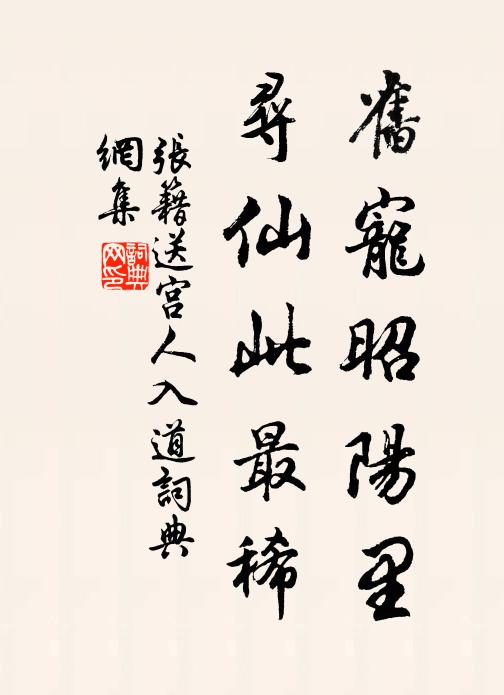 舊寵昭陽里
尋仙此最稀
張籍送宮人入道詞典
網集
詞典
网印